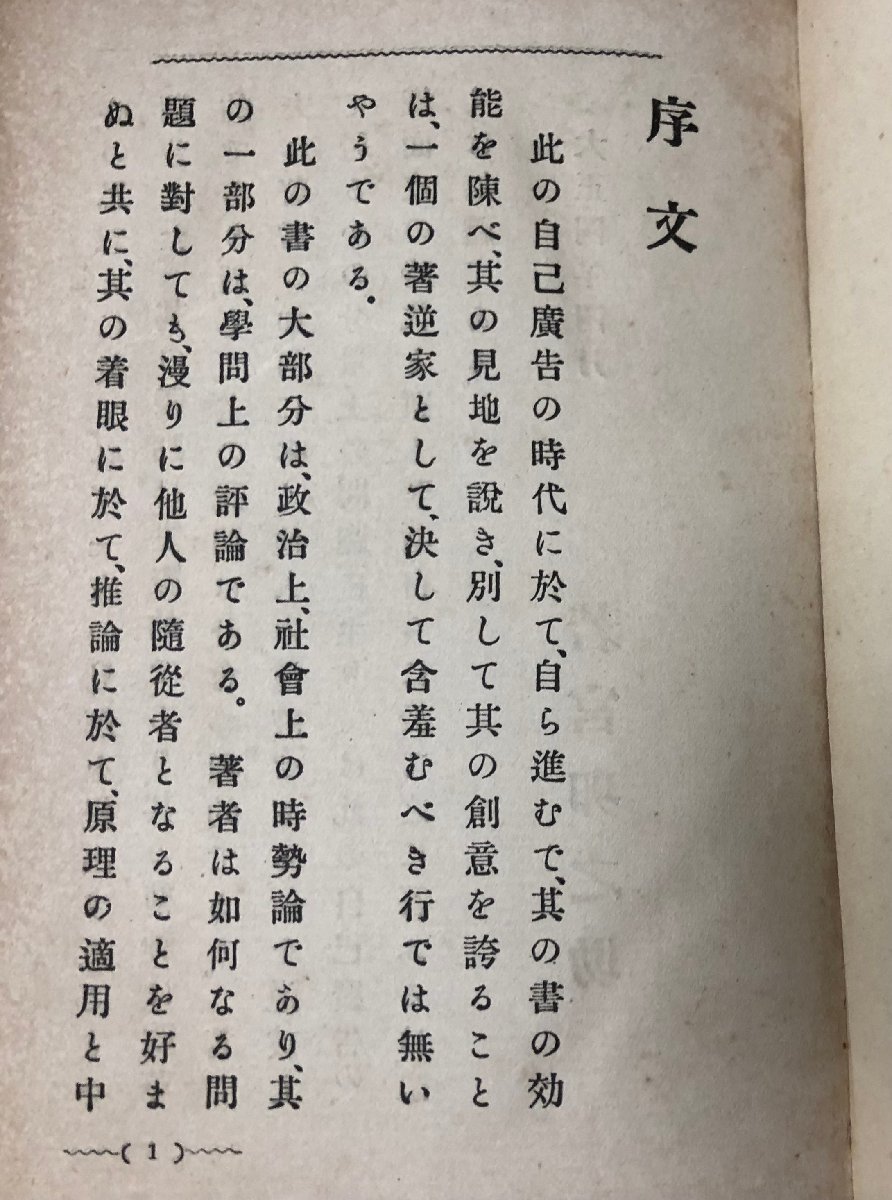 序文
此の自己廣告の時代に於て、自ら進むで、其の書の効
能を陳べ、其の見地を說き、別して其の創意を誇ること
は、一個の著逆家として、決して含羞むべき行では無い
やうである。
此の書の大部分は、政治上、社會上の時勢論であり、其
の一部分は、學問上の評論である。著者は如何なる問
題に對しても、漫りに他人の隨從者となることを好ま
ぬと共に、其の着眼に於て、推論に於て、原理の適用と中
(1)